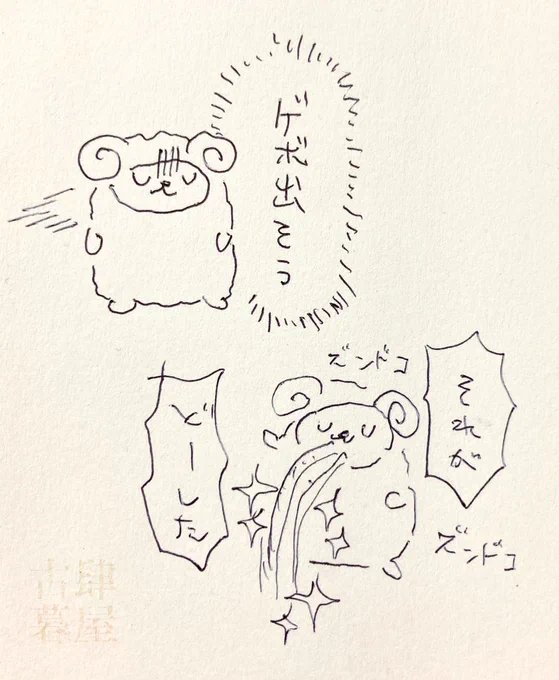 ゲボ出そう
それが
どーした
ズンドコ
ズンドコ
古肆
暮屋